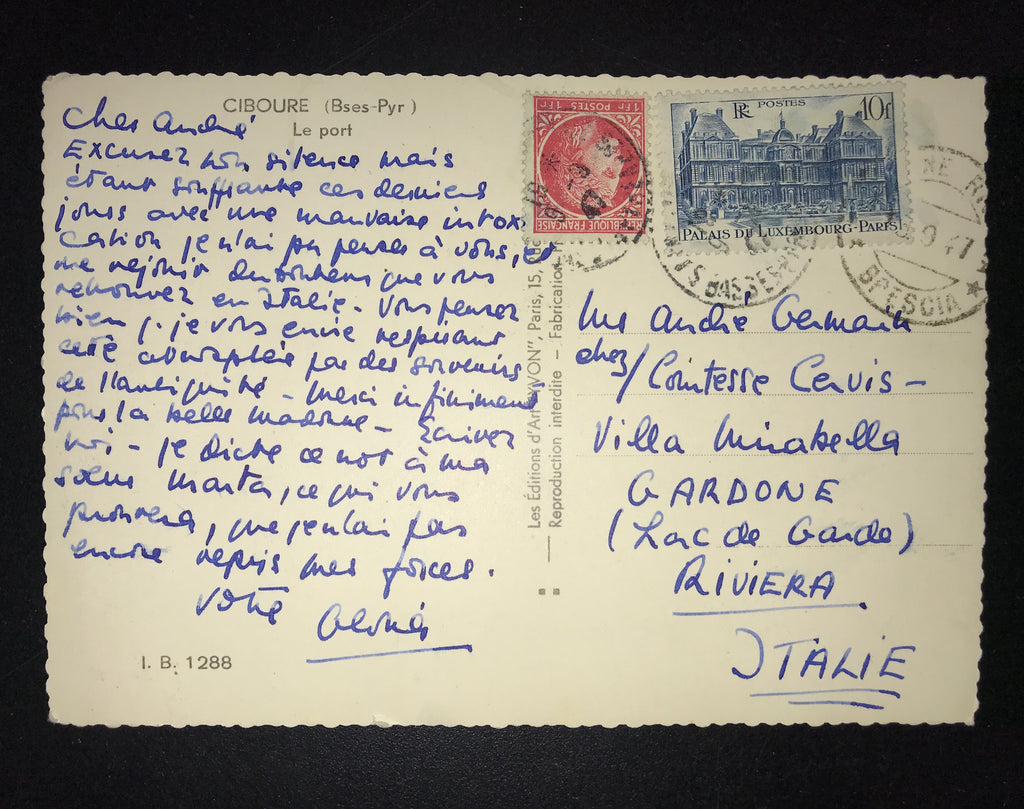 CIBOURE (Bses-Pyr)
Le port
Cher André
Excusez mon silence mais
étant souffrante ces derniers
jours avec une mauvaise intoxi
cation je n'ai pu penser à vous, et
me réjouir du bonheur que vous
retrouvez en Italie. Vous pensez
bien je vous envie respirant
cette atmosphère par des souvenirs
de l'antiquité - Merci infiniment
pour la belle madone - Écrivez
moi - je dicte ce mot à ma
sœur Marta, ce qui vous
prouvera, que je n'ai pas
encore repris mes forces.
Votre
I. B. 1288
Les Éditions d'Art "YVON", Paris, 15,
Reproduction interdite - Fabrication
1Fr POSTES 1Fr
RÉPUBLIQUE FRANÇAISE
RF POSTES 10f
PALAIS DU LUXEMBOURG-PARIS
BRESCIA
André Germain
chez/Comtesse Cervis -
Villa Mirabella
GARDONE
(Lac de Garde)
RIVIERA
ITALIE